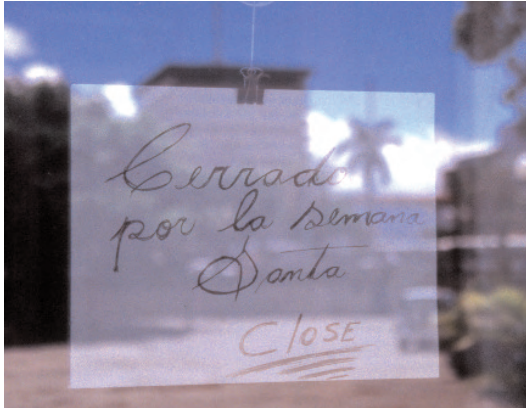 Cerrado
por la semana
Santa
Close